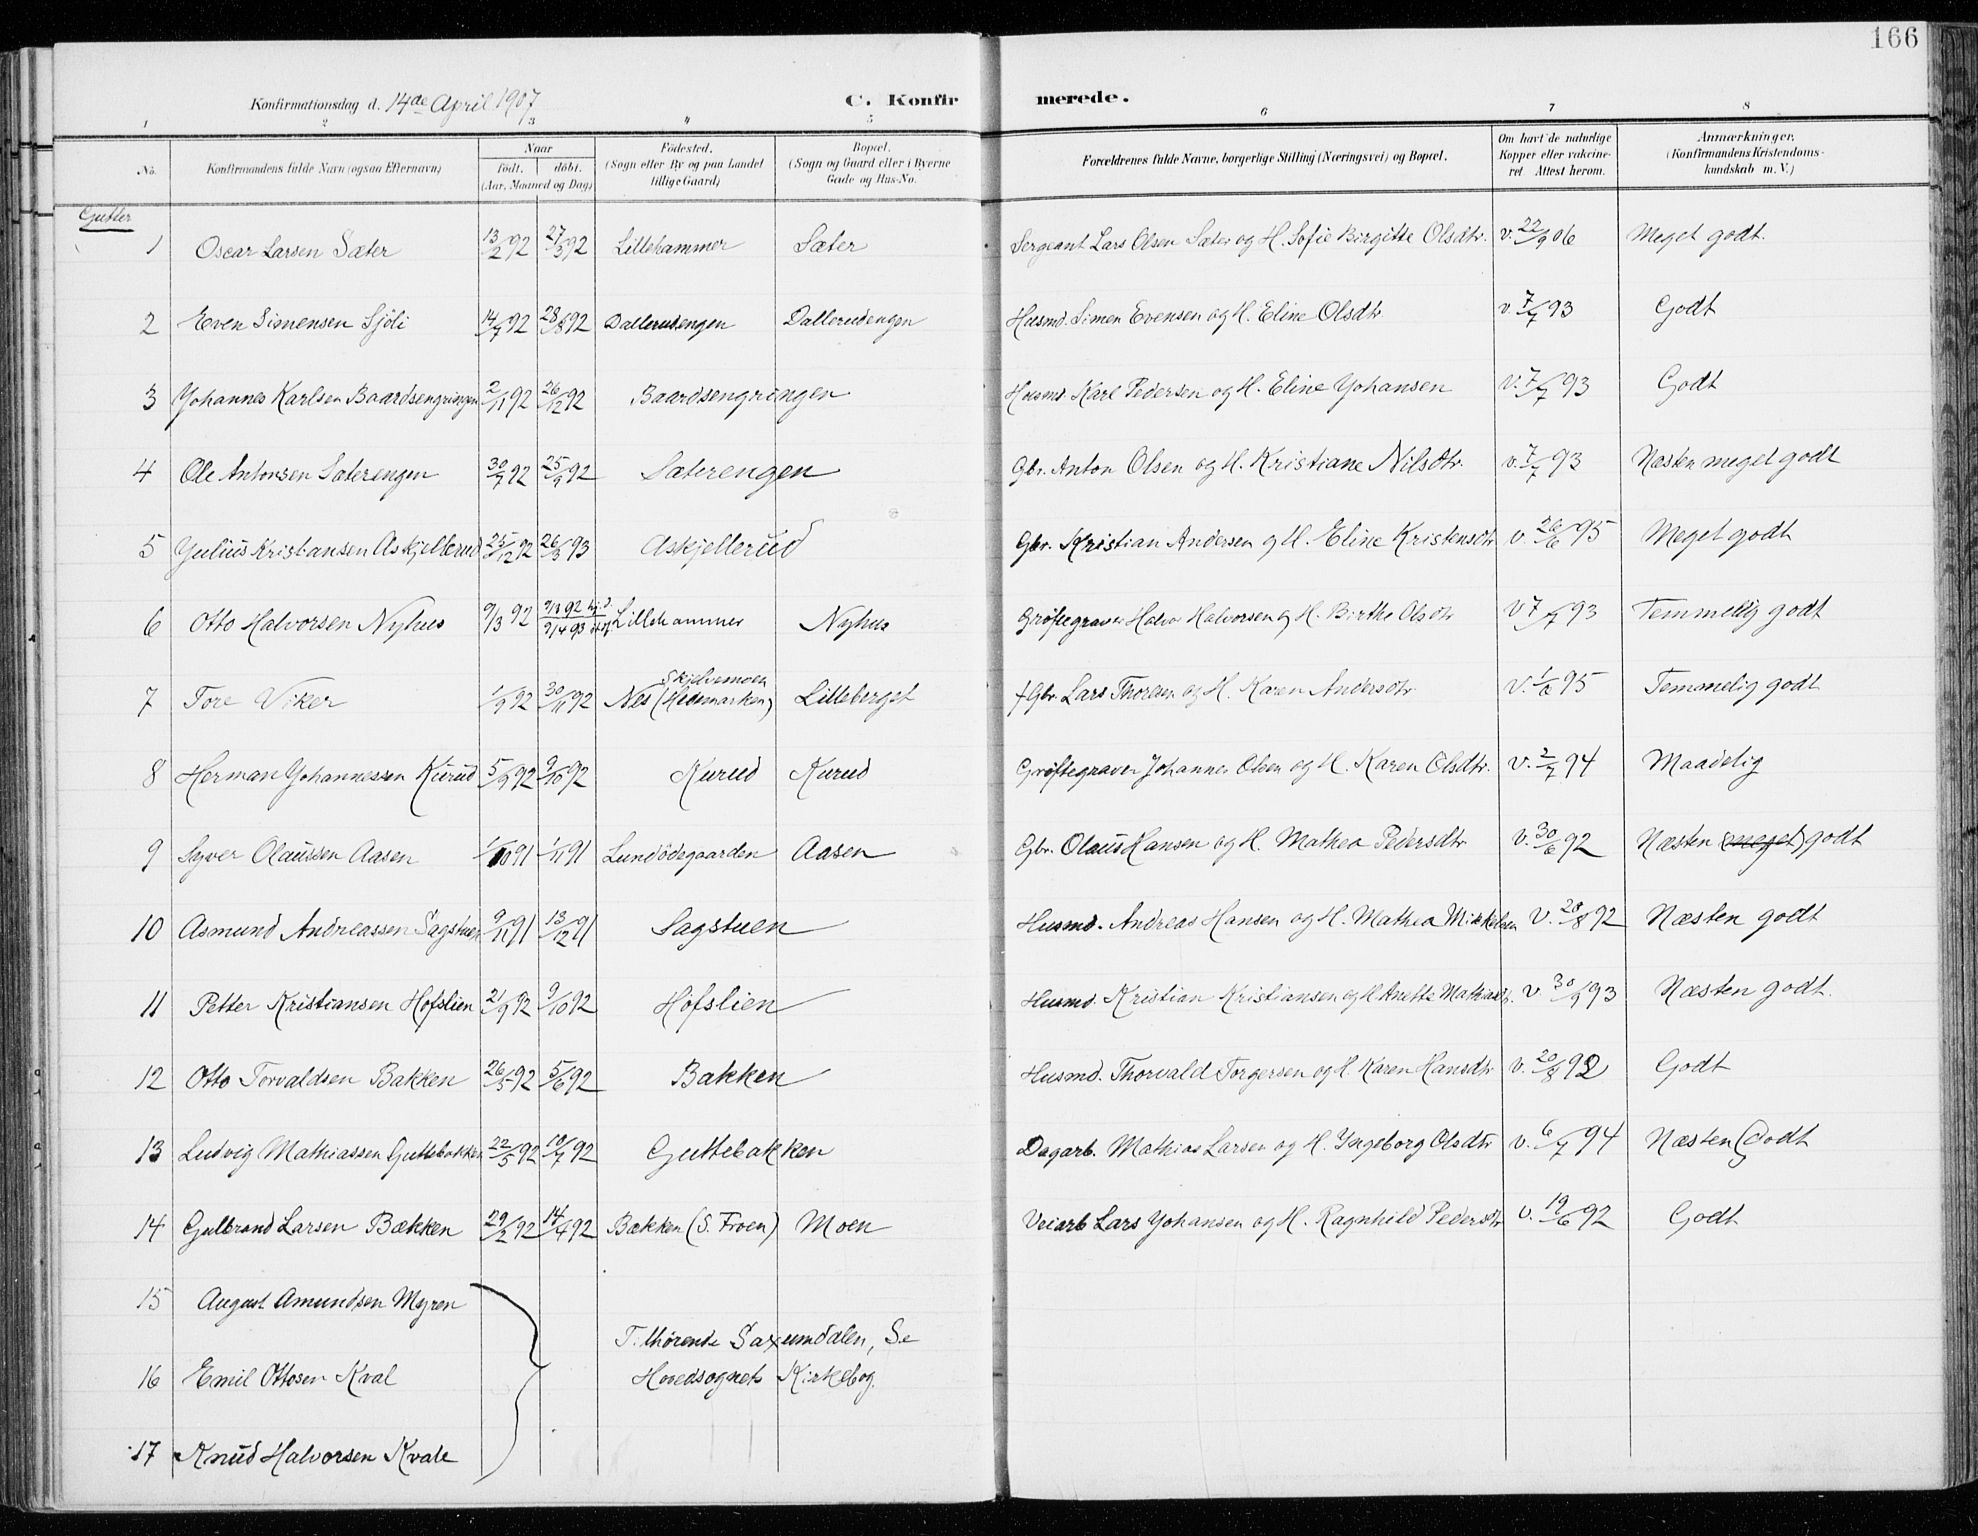 166
Konfirmationsdag d. 14de April 1907
C. Konfirmerede.
1 2 3 4 5 6 7 8
No. Konfirmandens fulde Navn (ogsaa Efternavn) Naar født. døbt. (Aar, Maaned og Dag) Födested. (Sogn eller By og paa Landet tillige Gaard) Bopæl. (Sogn og Gaard eller i Byerne Gade og Hus-No. Forældrenes fulde Navne, borgerlige Stilling (Næringsvei) og Bopæl. Om havt de naturlige Kopper eller vakcineret. Attest herom. Anmærkninger. (Konfirmandens Kristendomskundskab m. V.)
Gutter
1 Oscar Larsen Sæter 13/2 92 27/3 92 Lillehammer Sæter Sergeant Lars Olsen Sæter og H. Sofie Birgitte Olsdtr. v. 22/9 06 Meget godt.
2 Even Simensen Sjöli 14/7 92 28/8 92 Dallerudengen Dallerudengen Husmd. Simen Evensen og H. Eline Olsdtr v. 7/7 93 Godt
3 Yohannes Karlsen Baardsengringen 2/11 92 26/12 92 Baardsengringen Husmd. Karl Pedersen og H. Eline Yohansen v. 7/7 93 Godt
4 Ole Antonsen Sæterengen 30/7 92 25/9 92 Sæterengen Gbr. Anton Olsen og H. Kristiane Nilsdtr. v. 7/7 93 Næsten meget godt
5 Yulius Kristiansen Askjellerud 25/12 92 26/3 93 Askjellerud Gbr. Kristian Andersen og H. Eline Kristensdtr v. 26/6 95 Meget godt
6 Otto Halvorsen Nyhus 9/3 92 9/3 92 hj.d. 9/4 93 Lillehammer Nyhus Grøftegraver Halvor Halvorsen og H. Birthe Olsdtr v 7/7 93 Temmelig godt
7 Tore Viker 1/9 92 30/11 92 Skjelvemoen Nes (Hedemarken) Lilleberget † Gbr. Lars Thoresen og H. Karen Andersdtr v. 1/6 95 Temmelig godt
8 Herman Yohannessen Kurud 5/9 92 9/10 92 Kurud Kurud Grøftegraver Johannes Olsen og H. Karen Olsdtr. v. 2/7 94 Maadelig
9 Syver Olaussen Aasen 1/10 91 1/11 91 Lundödegaarden Aasen Gbr. Olaus Hansen og H. Mathea Pedersdtr v. 30/6 92 Næsten (meget) godt
10 Asmund Andreassen Sagstuen 9/11 91 13/12 91 Sagstuen Husmd. Andreas Hansen og H. Mathea Mikkelsen v. 28/8 92 Næsten godt
11 Petter Kristiansen Hofslien 21/9 92 9/10 92 Hofslien Husmd. Kristian Kristiansen og H. Anette v. 30/9 93 Næsten godt.
12 Otto Torvaldsen Bakken 26/5 92 5/6 92 Bakken Husmd. Thorvald Torgersen og H. Karen Hansdtr v. 20/8 92 Godt
13 Ludvig Mathiassen Guttebakken 22/5 92 10/7 92 Guttebakken Dagarb. Mathias Larsen og H. Yngeborg Olsdtr v. 6/7 94 Næsten Godt
14 Gulbrand Larsen Bækken 29/2 92 14/4 92 Bækken (S. Froen) Moen Veiarb Lars Yohansen og H. Ragnhild Pedersdtr v. 19/6 92 Godt
15 August Amundsen Myren
T. hørende Saxumdalen, Se
16 Emil Ottosen Kval Hovedsognets Kirkebog.
17 Knud Halvorsen Kvale